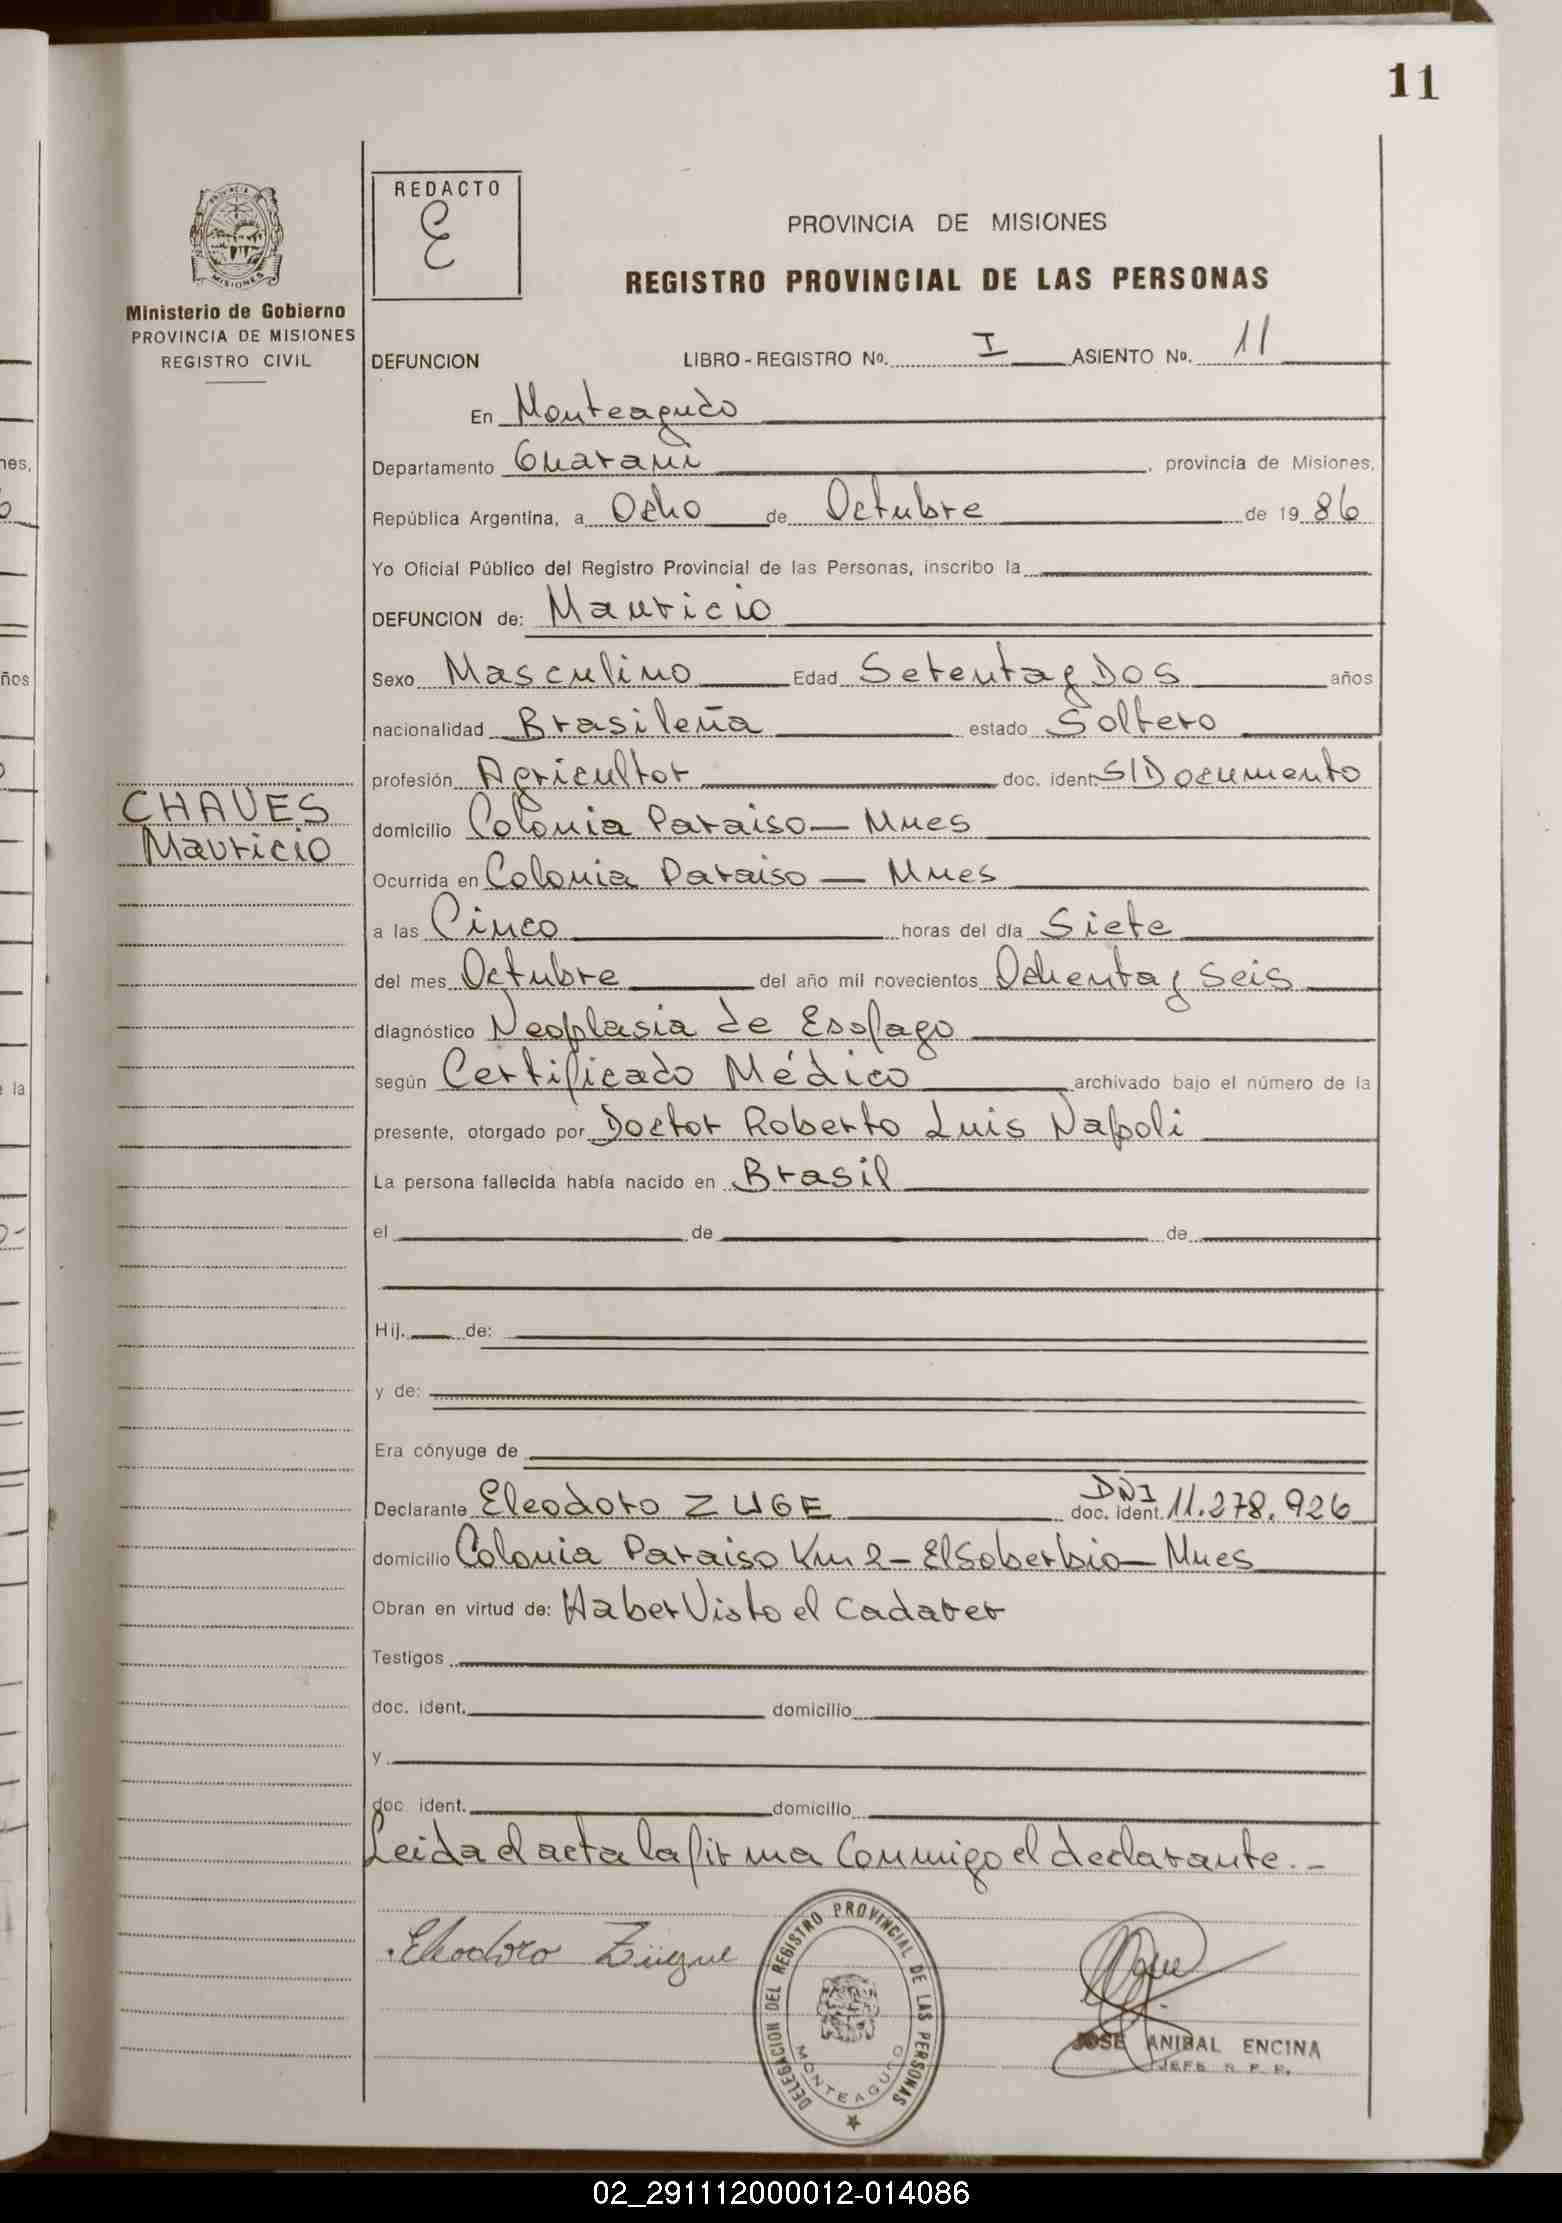 11
REDACTO
E
PROVINCIA DE MISIONES
REGISTRO PROVINCIAL DE LAS PERSONAS
MISIONES
Ministerio de Gobierno
PROVINCIA DE MISIONES
REGISTRO CIVIL
DEFUNCION LIBRO-REGISTRO No. I ASIENTO No. 11
En Monteagudo
Departamento Guarani, provincia de Misiones,
República Argentina, a Ocho de Octubre de 1986
Yo Oficial Público del Registro Provincial de las Personas, inscribo la
DEFUNCION de: Mauricio
Sexo Masculino Edad Setenta y Dos años
nacionalidad Brasileña estado Soltero
profesión Agricultor doc. ident. S/Documento
CHAVES
Mauricio
domicilio Colonia Paraiso — Mnes
Ocurrida en Colonia Paraiso — Mnes
a las Cinco horas del día Siete
del mes Octubre del año mil novecientos Ochenta y Seis
diagnóstico Neoplasia de Esofago
según Certificado Médico archivado bajo el número de la
presente, otorgado por Doctor Roberto Luis Napoli
La persona fallecida había nacido en Brasil
el de de
Hij. de:
y de:
Era cónyuge de
Declarante Eleodoro ZUGE doc. ident. DNI 11.278.926
domicilio Colonia Paraiso Km 2 - El Soberbio - Mnes
Obran en virtud de: Haber Visto el Cadaver
Testigos
doc. ident. domicilio
y
doc. ident. domicilio
Leida el acta la firma Conmigo el declarante.-
Eleodoro Zügue
DELEGACION DEL REGISTRO PROVINCIAL DE LAS PERSONAS
MONTEAGUDO
JOSE ANIBAL ENCINA
JEFE R. P. P.
02_291112000012-014086